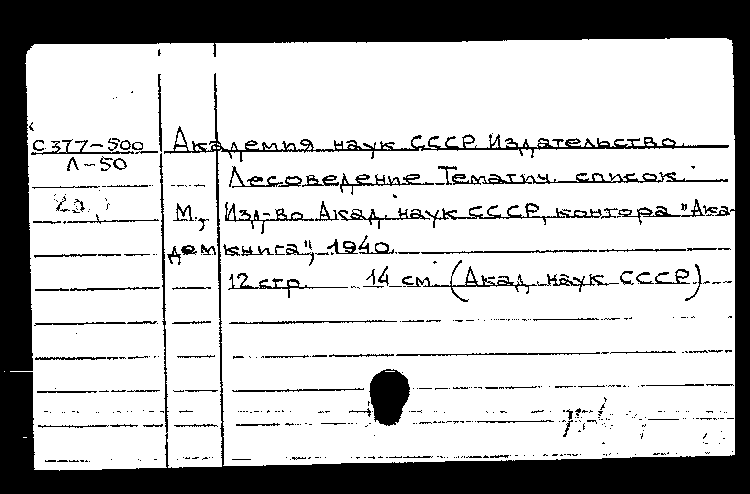 С 377-500 Академия наук СССР Издательство.
Л-50
Лесоведение Тематич. список.
М., Изд-во Акад. наук СССР, контора "Ака-
демкнига", 1940.
12 стр. 14 см. (Акад. наук СССР)